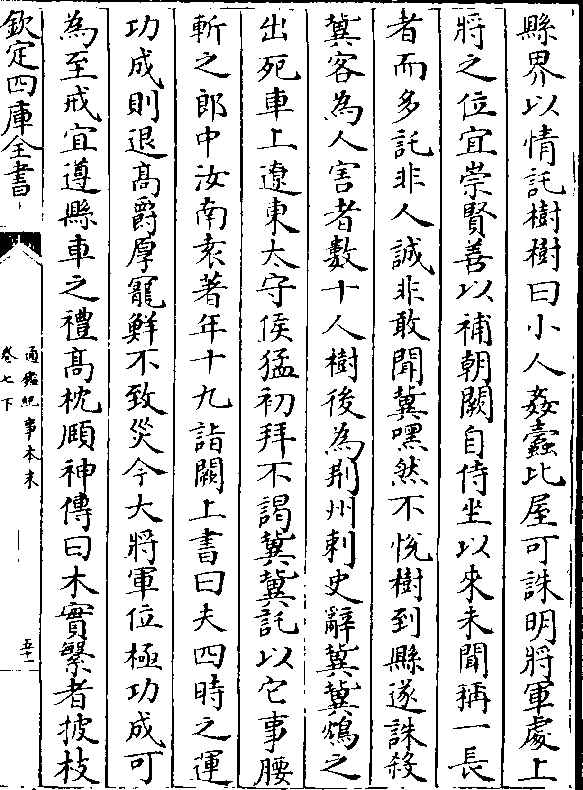 縣界以情託樹樹曰小人姦蠹比屋可誅明將軍處上
將之位宜崇賢善以補朝闕自侍坐以來未聞稱一長
者而多託非人誠非敢聞冀嘿然不悅樹到縣遂誅殺
冀客為人害者數十人樹後為荆州刺史辭冀冀鴆之
出死車上遼東太守侯猛初拜不謁冀冀託以它事腰
斬之郎中汝南袁著年十九詣闕上書曰夫四時之運
功成則退高爵厚寵鮮不致災今大將軍位極功成可
為至戒宜遵縣車之禮高枕頤神傳曰木實繁者披枝
欽定四庫全書
通鑑紀事本末
卷七下